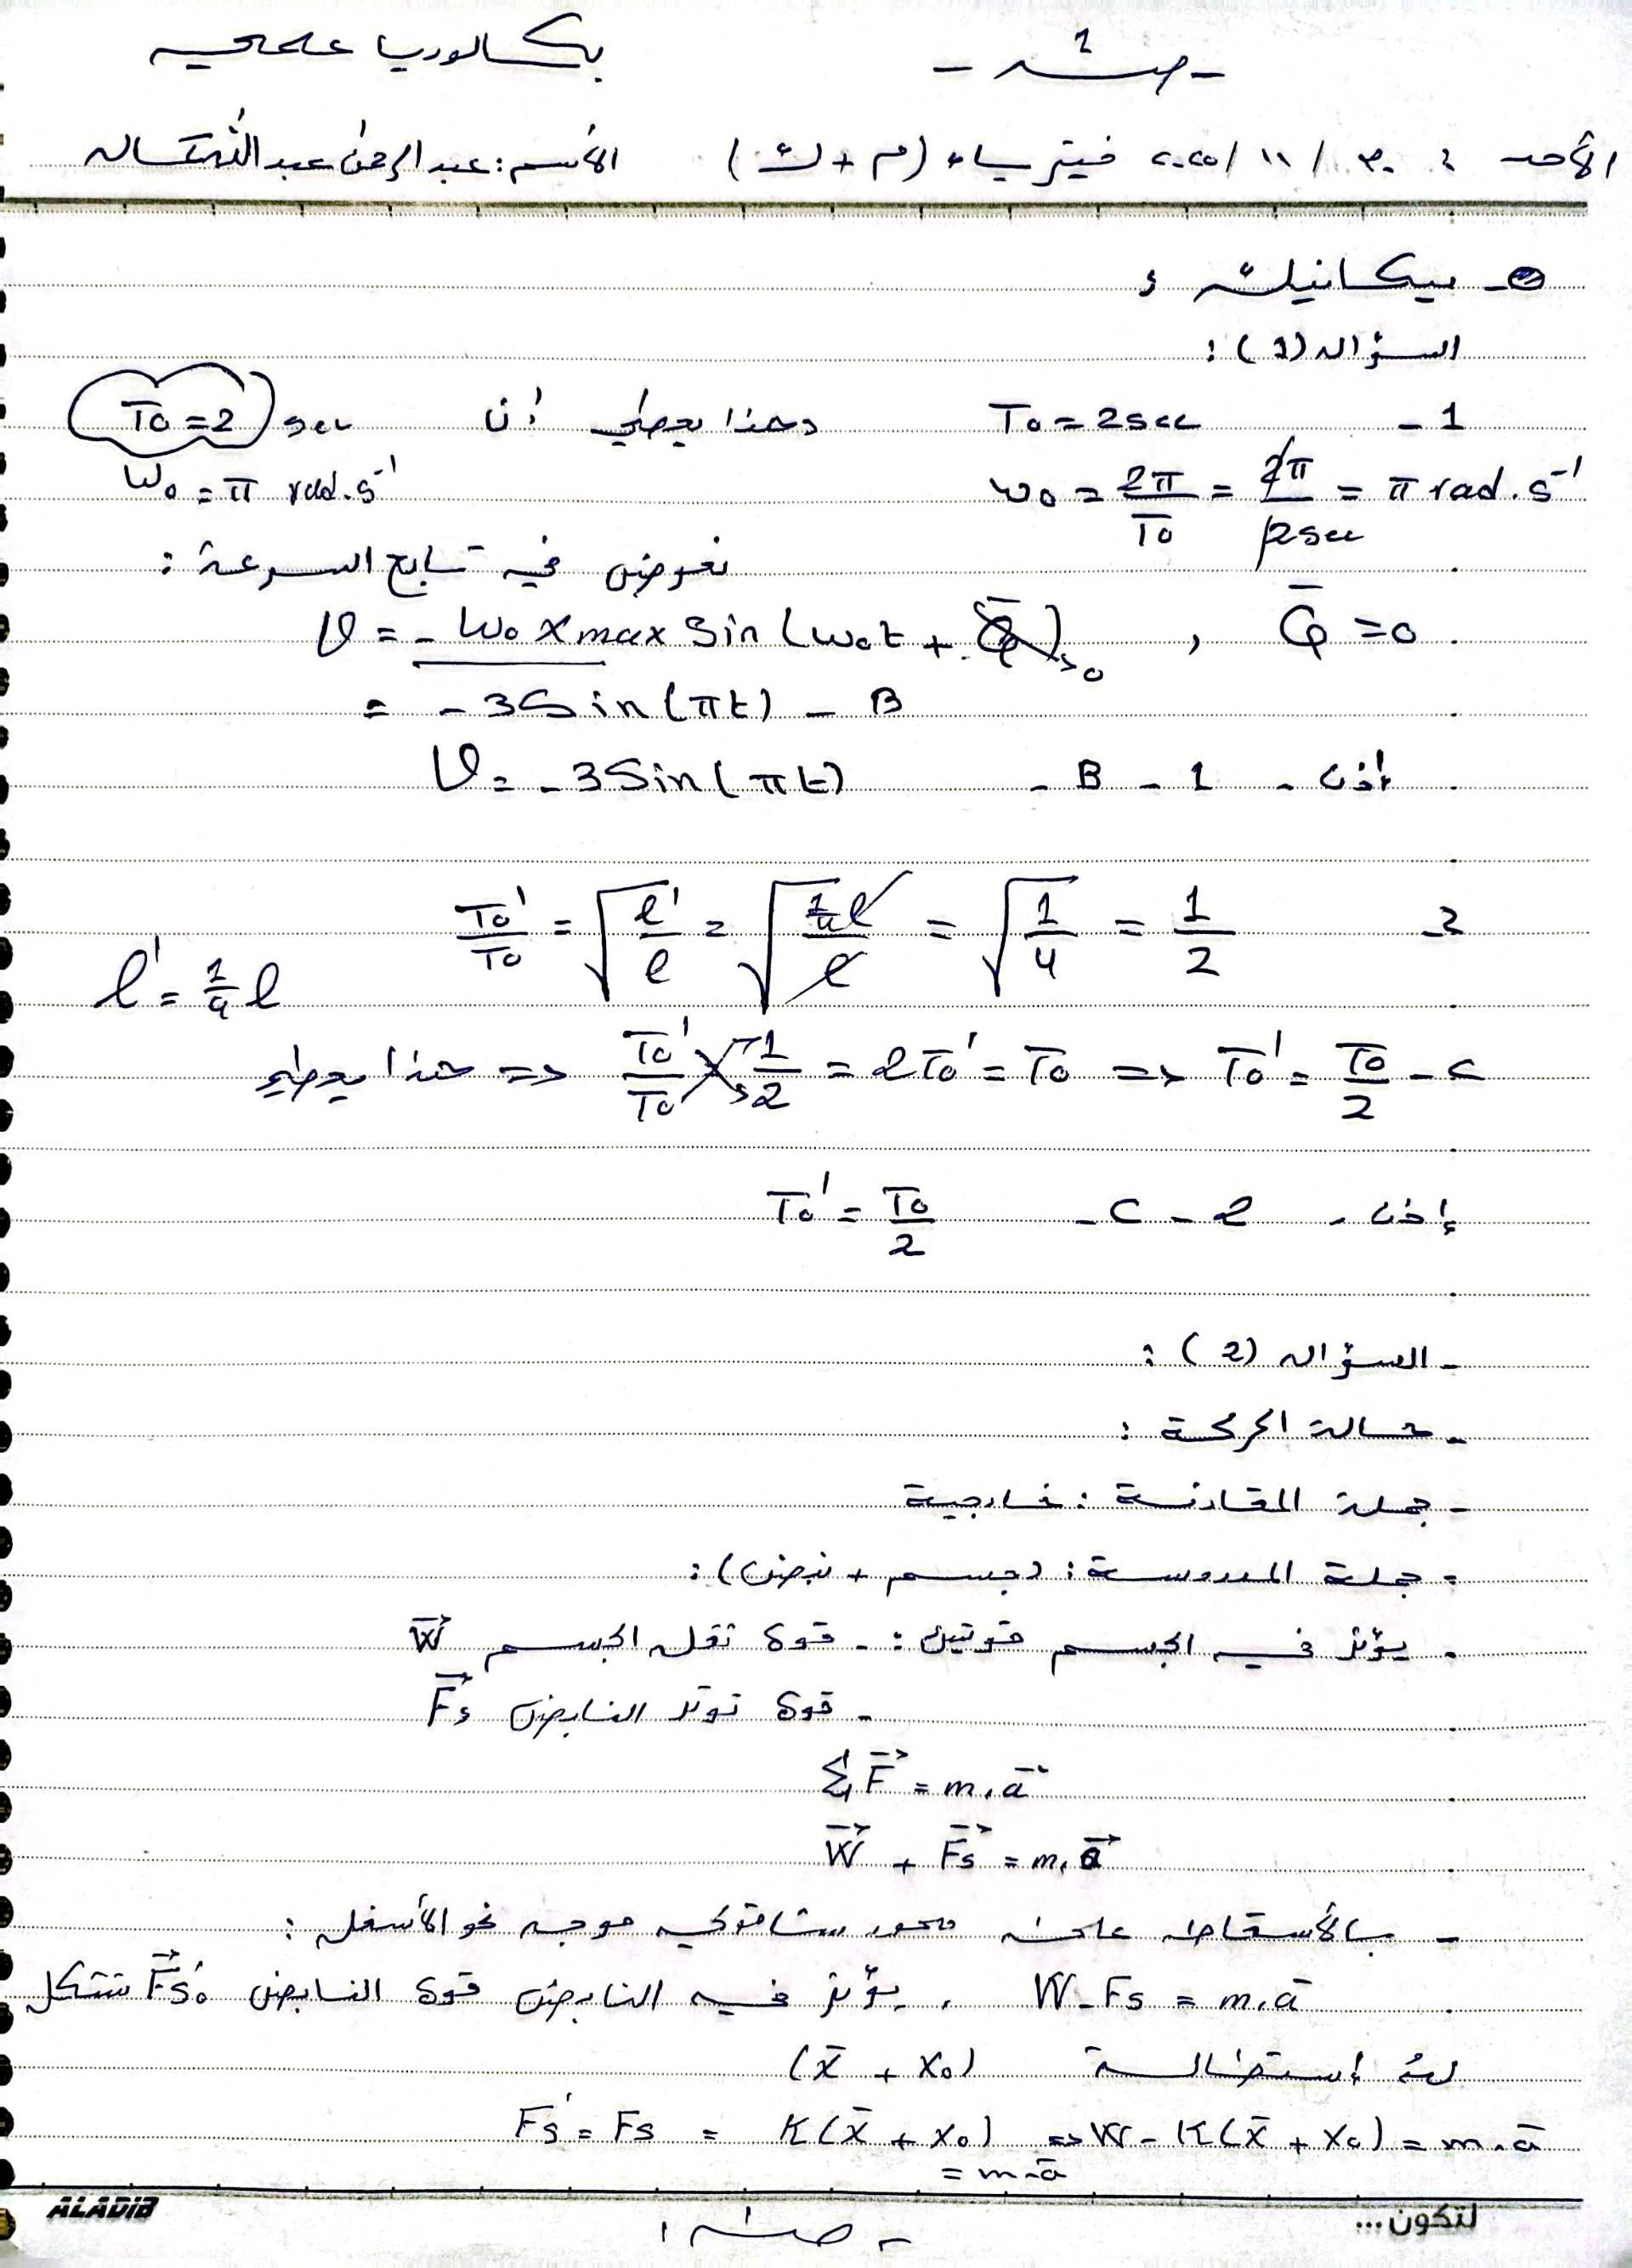 - صـ 1 -
بكالوريا علمي
الأحد : ٣٠ / ١١ / ٢٠٢٥ فيزياء (م + ك) الأسم : عبد الرحمن عبد الله
- ميكانيك :
السؤال (1) :
1 - T₀ = 2 sec وهذا يعطي أن T₀ = 2 sec
ω₀ = 2π/T₀ = 2π/2sec = π rad.s⁻¹
ω₀ = π rad.s⁻¹
نعوض في تابع السرعة :
v = - ω₀ Xmax Sin(ω₀t + φ̄) , φ̄ = 0
= - 3 Sin(πt) - B
إذن - 1 - B - v = - 3 Sin(πt)
2- T₀'/T₀ = √(l'/l) = √(¼l/l) = √(1/4) = 1/2
l' = ¼ l
هذا يعطي => T₀'/T₀ 1/2 = 2T₀' = T₀ => T₀' = T₀/2 - C
إذن - 2 - C - T₀' = T₀/2
- السؤال (2) :
- حالة الحركة :
- جملة المقارنة : خارجية
- جملة المدروسة : (جسم + نابض) :
- يؤثر في الجسم قوتين : - قوة ثقل الجسم W⃗
- قوة توتر النابض F⃗s
Σ F⃗ = m.a⃗
W⃗ + F⃗s = m.a⃗
- بالأسقاط على محور شاقولي موجه نحو الأسفل :
W - Fs = m.ā . يؤثر في النابض قوة النابض F⃗s' تشكل
له إستطالة (x̄ + x₀)
Fs' = Fs = K(x̄ + x₀) => W - K(x̄ + x₀) = m.ā
= m.ā
ALADIB
لتكون ...
- صـ ١ -